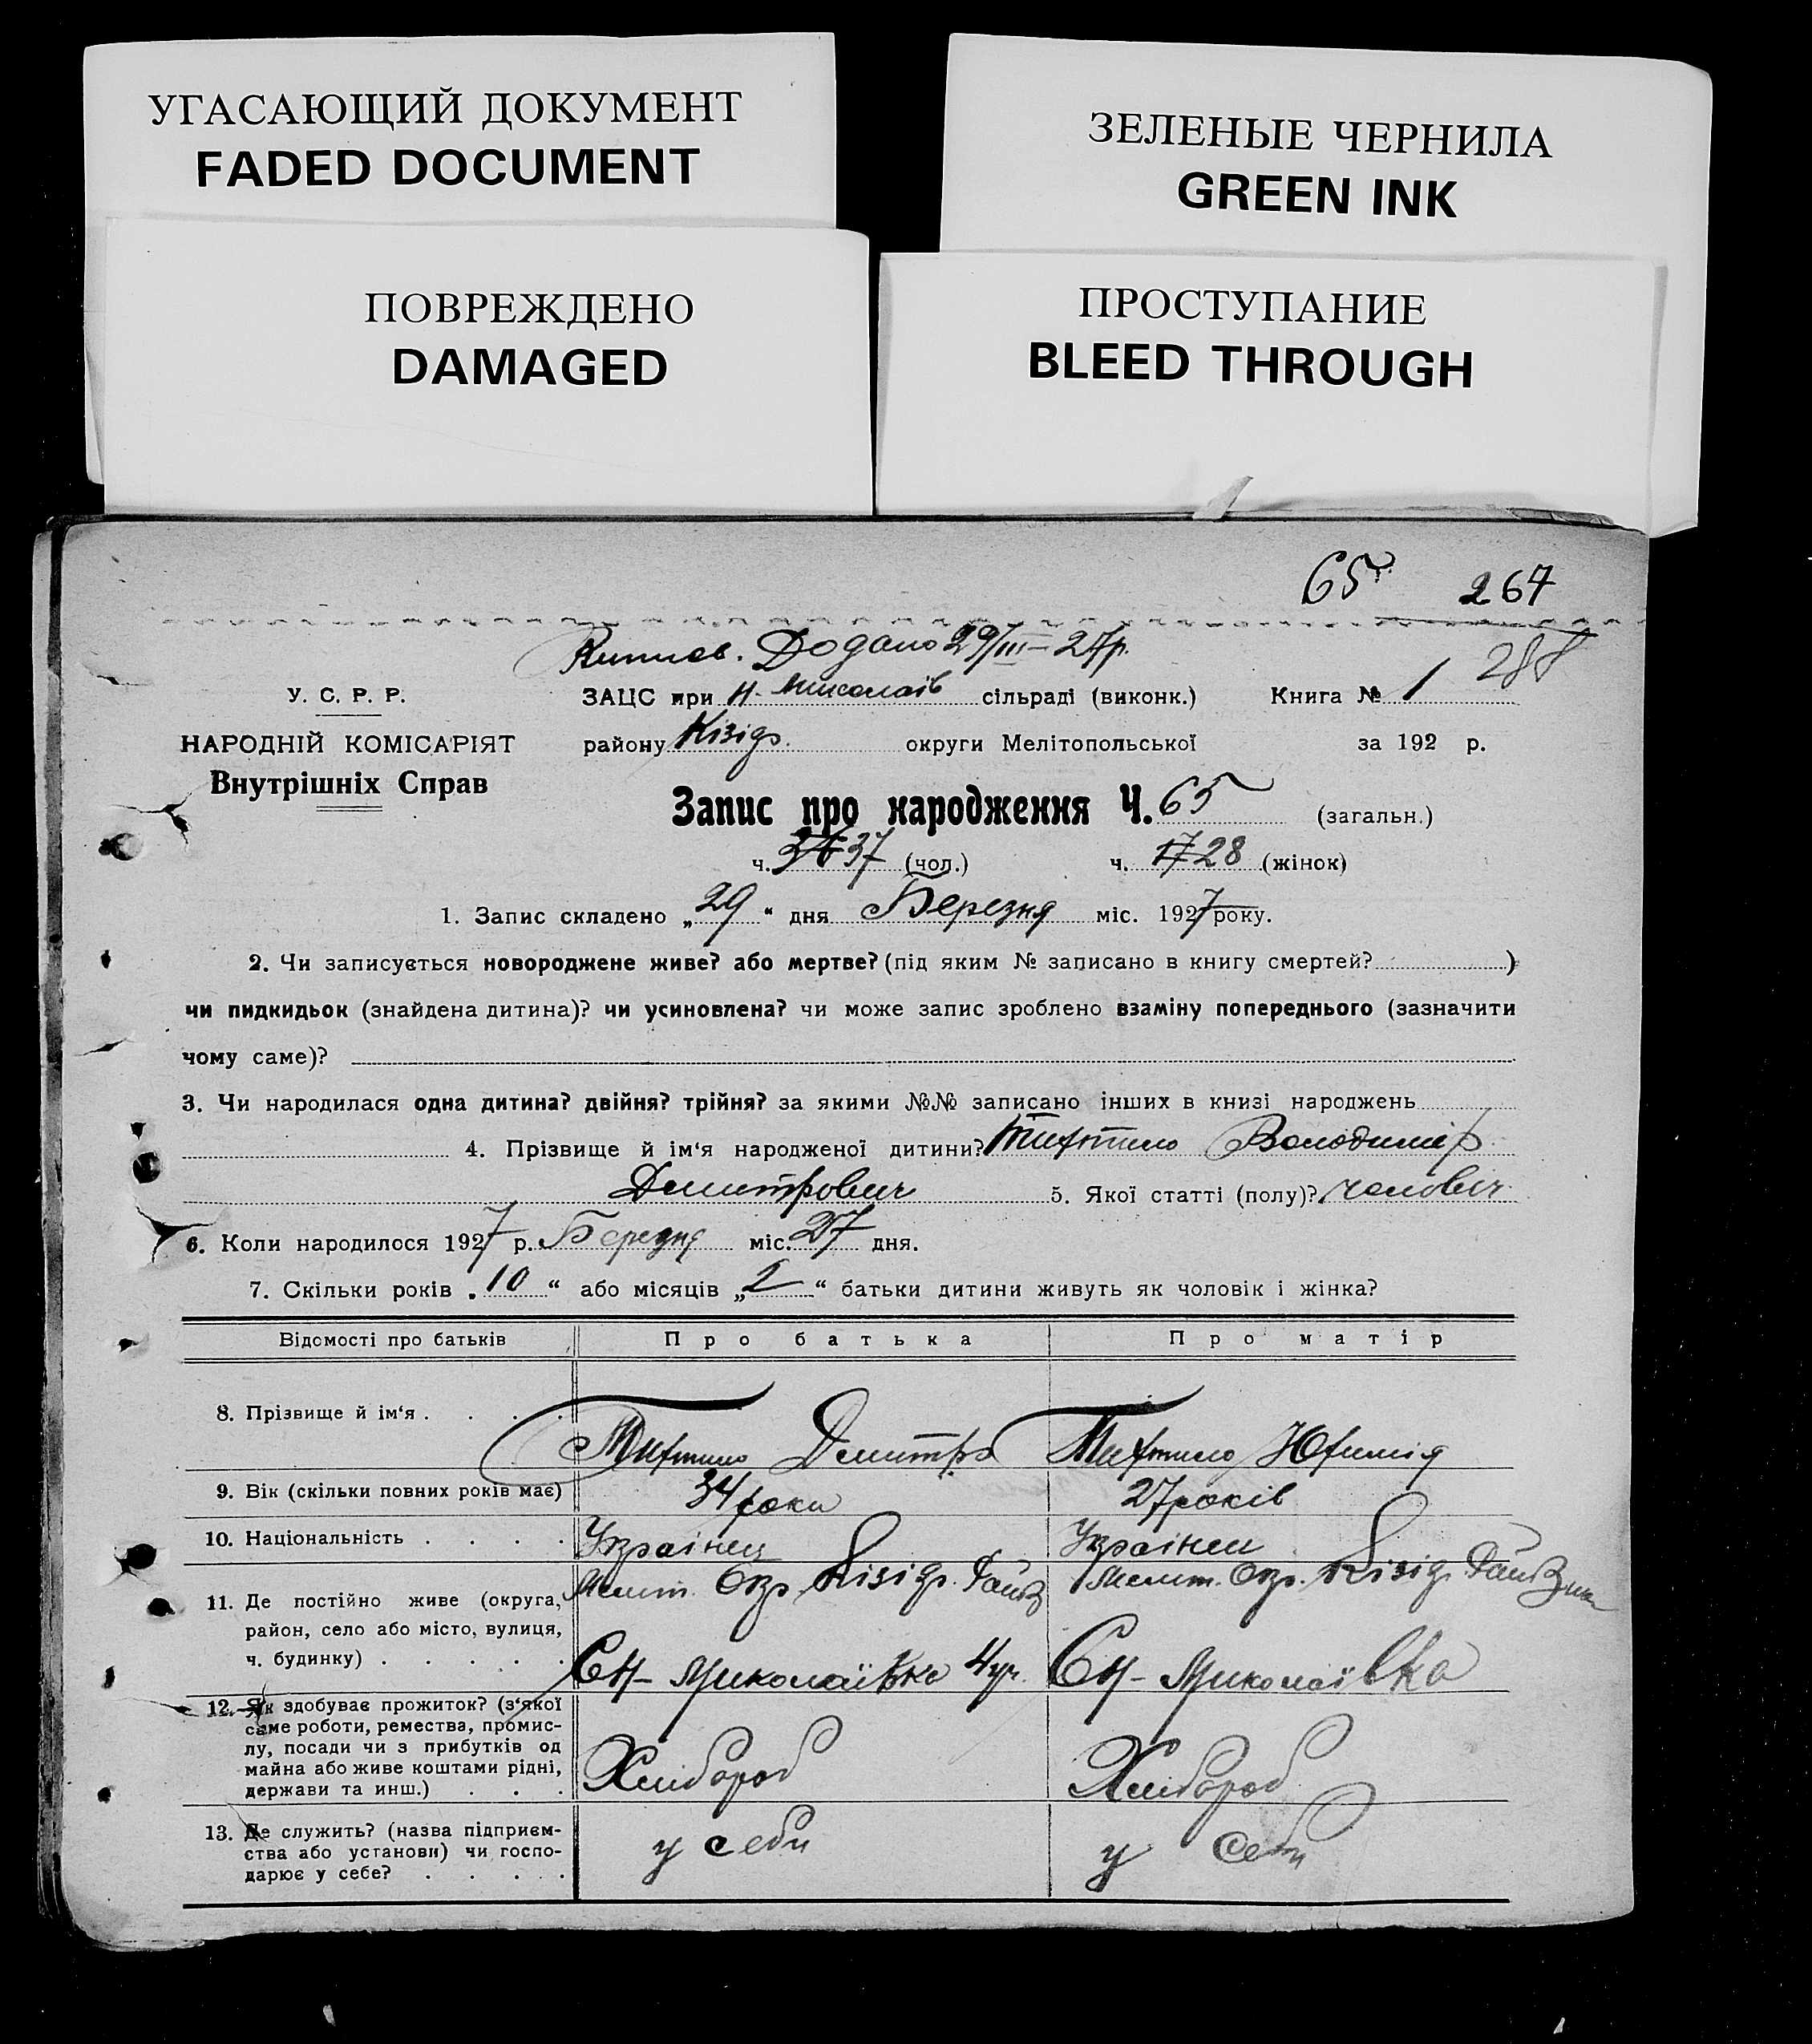 УГАСАЮЩИЙ ДОКУМЕНТ
FADED DOCUMENT
ЗЕЛЕНЫЕ ЧЕРНИЛА
GREEN INK
ПОВРЕЖДЕНО
DAMAGED
ПРОСТУПАНИЕ
BLEED THROUGH
65 267
Додано 29/III-27р. 288
У. С. Р. Р. ЗАЦС при Н-Миколаїв сільраді (виконк.) Книга № 1
НАРОДНІЙ КОМІСАРІЯТ району Кізідр. округи Мелітопольської за 192 р.
Внутрішніх Справ
Запис про народження Ч. 65 (загальн.)
ч. 36 37 (чол.) ч. 17 28 (жінок)
1. Запис складено „29“ дня Березня міс. 1927 року.
2. Чи записується новороджене живе? або мертве? (під яким № записано в книгу смертей? )
чи пидкидьок (знайдена дитина)? чи усиновлена? чи може запис зроблено взаміну попереднього (зазначити
чому саме)?
3. Чи народилася одна дитина? двійня? трійня? за якими №№ записано інших в книзі народжень
4. Прізвище й ім'я народженої дитини? Володимір
Дмитрович 5. Якої статті (полу)? чоловіч
6. Коли народилося 1927 р. Березня міс. 27 дня.
7. Скільки років „10“ або місяців „2“ батьки дитини живуть як чоловік і жінка?
Відомості про батьків Про батька Про матір
8. Прізвище й ім'я . . . . Дмитро Юфимія
9. Вік (скільки повних років має) 34 роки 27 років
10. Національність . . . . Українец Українец
11. Де постійно живе (округа, Мелит. Окр. Кізідр. Мелит. Окр. Кізідр.
район, село або місто, вулиця,
ч. будинку) . . . . . С Н-Миколаївка 4 уч. С Н-Миколаївка
12. Як здобуває прожиток? (з'якої
саме роботи, ремества, промис-
лу, посади чи з прибутків од
майна або живе коштами рідні, Хлібороб Хлібороб
держави та инш.) . . .
13. Де служить? (назва підприєм-
ства або установи) чи госпо- у себи у себи
дарює у себе? . . . . .